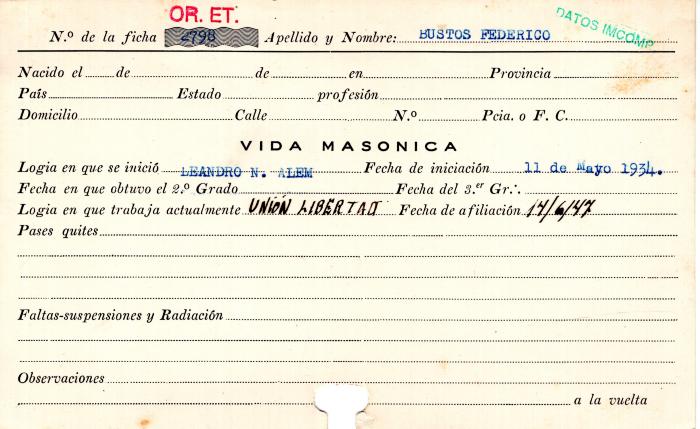 OR. ET.
N.º de la ficha 2798 Apellido y Nombre: BUSTOS FEDERICO DATOS IMCOMP
Nacido el de de en Provincia
País Estado profesión
Domicilio Calle N.º Pcia. o F. C.
VIDA MASONICA
Logia en que se inició LEANDRO N. ALEM Fecha de iniciación 11 de Mayo 1934.
Fecha en que obtuvo el 2.º Grado Fecha del 3.er Gr∴
Logia en que trabaja actualmente UNIÓN LIBERTAD Fecha de afiliación 14/6/47
Pases quites
Faltas-suspensiones y Radiación
Observaciones
a la vuelta